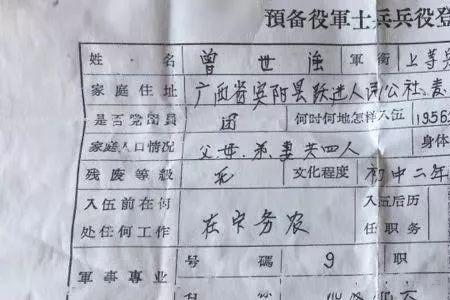 預备役軍士兵兵役登
姓名 曾世強 軍衔 上等兵
家庭住址 广西省宾阳县跃进人民公社
是否党團員 团 何时何地怎样入伍 1956
家庭人口情况 父.母.弟.妻共四人 身体
残废等級 无 文化程度 初中二年
入伍前在何处任何工作 在家务农 入伍后历任职务
軍事專业 号碼 9 职